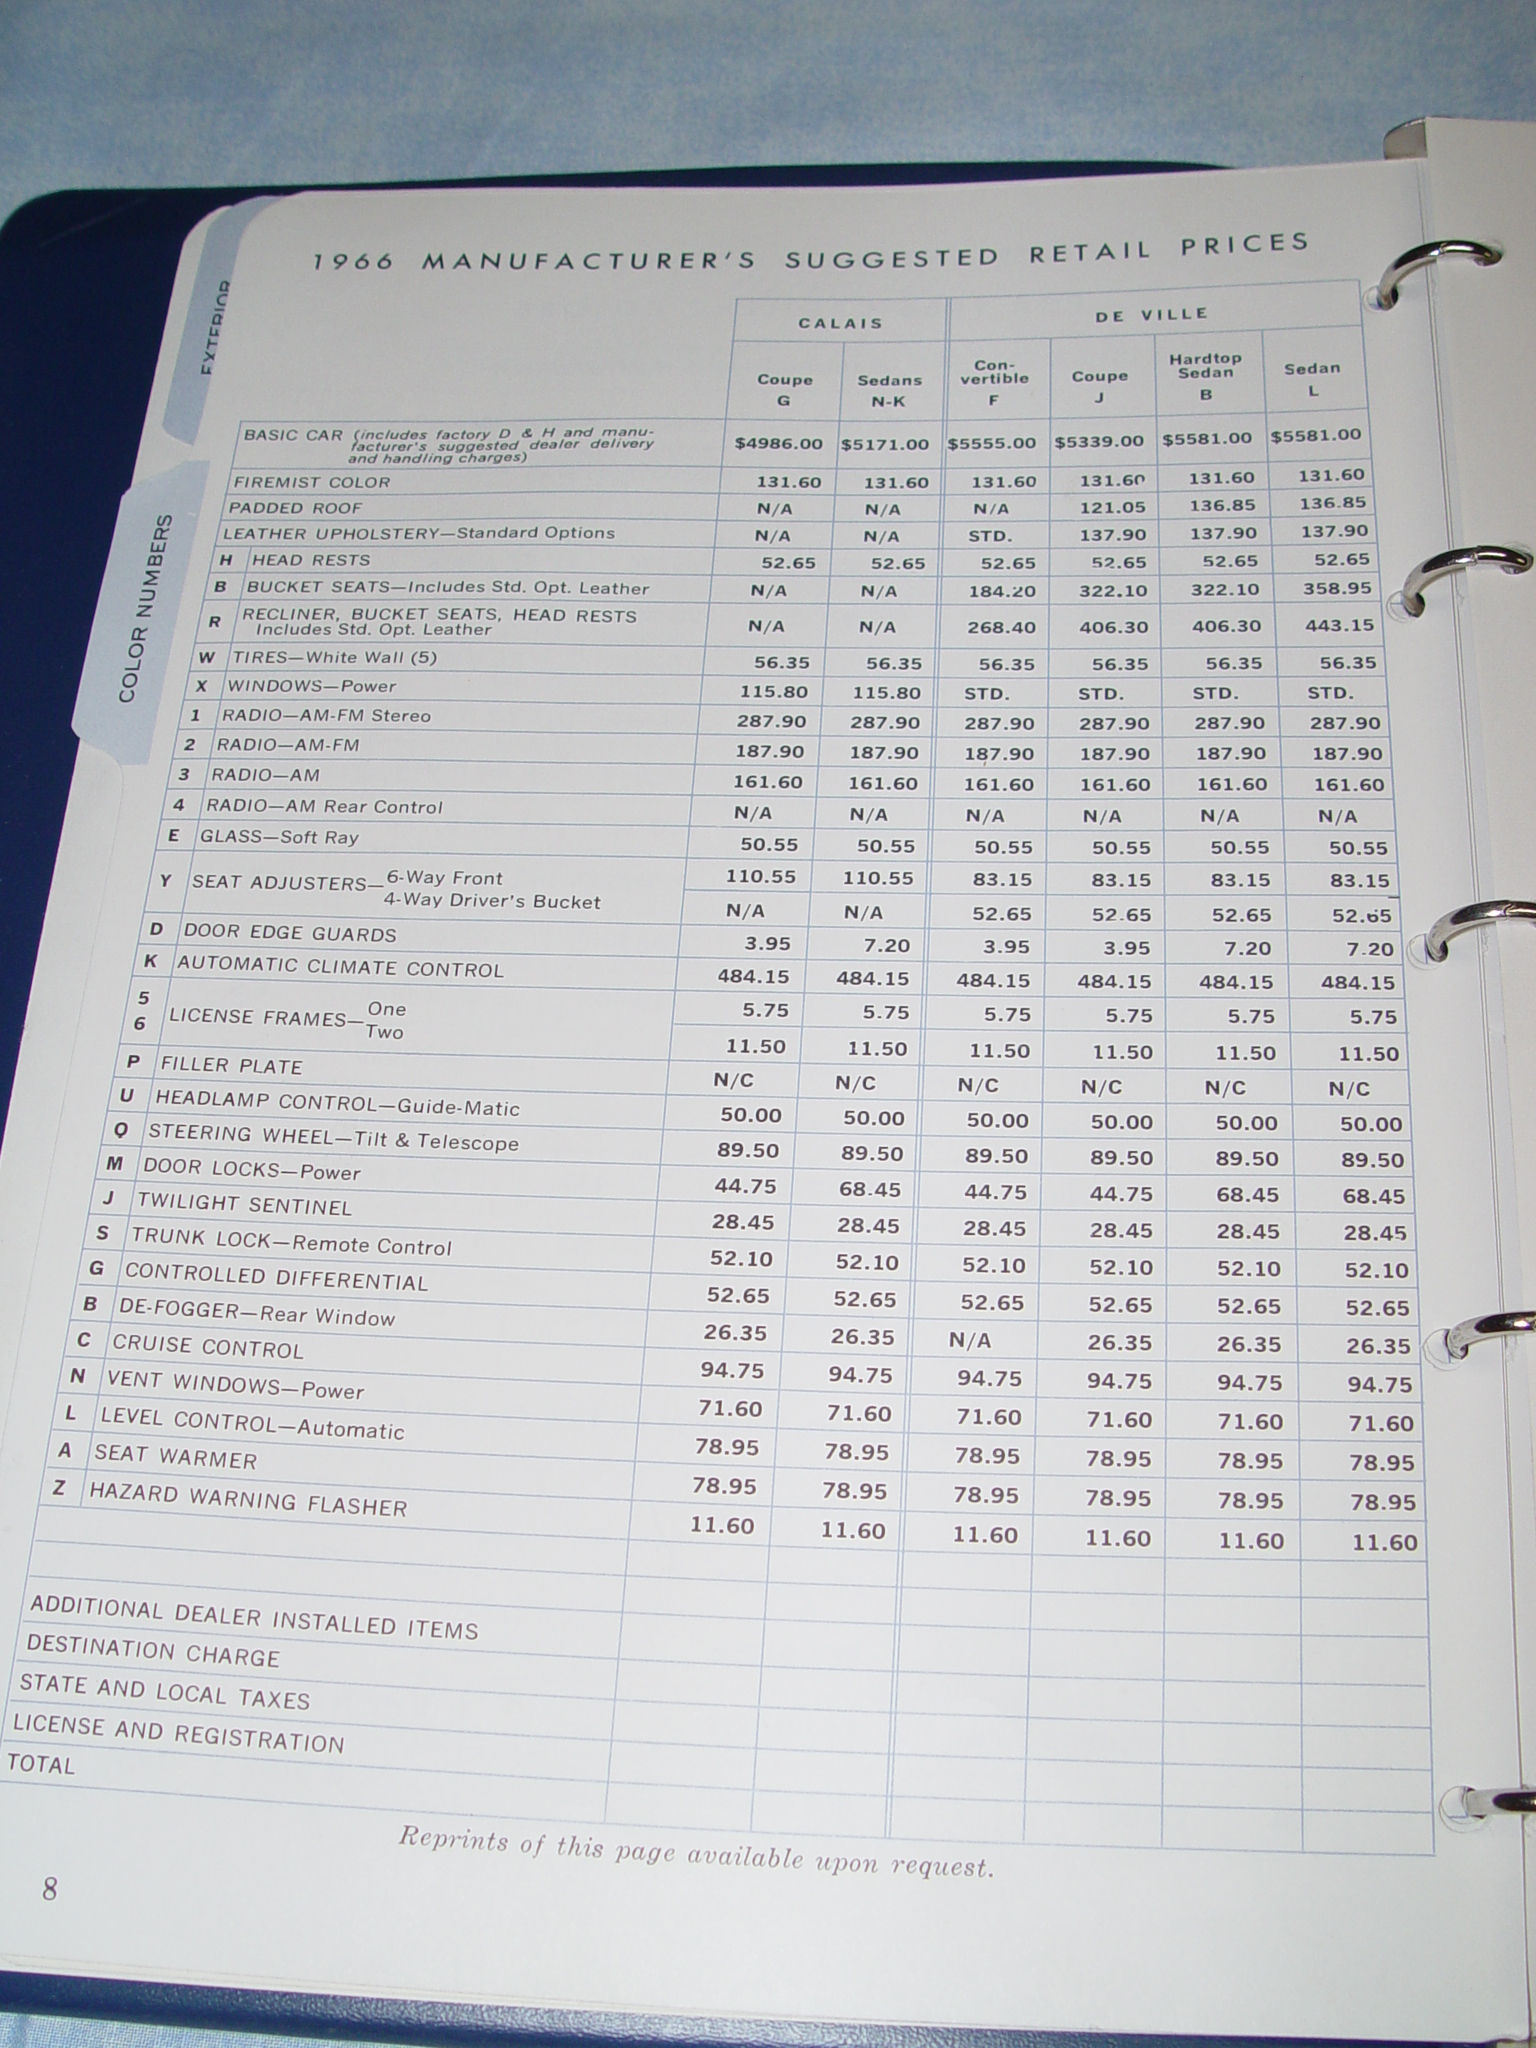 EXTERIOR
COLOR NUMBERS
1966 MANUFACTURER'S SUGGESTED RETAIL PRICES
CALAIS DE VILLE
Coupe G Sedans N-K Con-vertible F Coupe J Hardtop Sedan B Sedan L
BASIC CAR (includes factory D & H and manu-
facturer's suggested dealer delivery
and handling charges) $4986.00 $5171.00 $5555.00 $5339.00 $5581.00 $5581.00
FIREMIST COLOR 131.60 131.60 131.60 131.60 131.60 131.60
PADDED ROOF N/A N/A N/A 121.05 136.85 136.85
LEATHER UPHOLSTERY—Standard Options N/A N/A STD. 137.90 137.90 137.90
H HEAD RESTS 52.65 52.65 52.65 52.65 52.65 52.65
B BUCKET SEATS—Includes Std. Opt. Leather N/A N/A 184.20 322.10 322.10 358.95
R RECLINER, BUCKET SEATS, HEAD RESTS
Includes Std. Opt. Leather N/A N/A 268.40 406.30 406.30 443.15
W TIRES—White Wall (5) 56.35 56.35 56.35 56.35 56.35 56.35
X WINDOWS—Power 115.80 115.80 STD. STD. STD. STD.
1 RADIO—AM-FM Stereo 287.90 287.90 287.90 287.90 287.90 287.90
2 RADIO—AM-FM 187.90 187.90 187.90 187.90 187.90 187.90
3 RADIO—AM 161.60 161.60 161.60 161.60 161.60 161.60
4 RADIO—AM Rear Control N/A N/A N/A N/A N/A N/A
E GLASS—Soft Ray 50.55 50.55 50.55 50.55 50.55 50.55
Y SEAT ADJUSTERS—6-Way Front 110.55 110.55 83.15 83.15 83.15 83.15
4-Way Driver's Bucket N/A N/A 52.65 52.65 52.65 52.65
D DOOR EDGE GUARDS 3.95 7.20 3.95 3.95 7.20 7.20
K AUTOMATIC CLIMATE CONTROL 484.15 484.15 484.15 484.15 484.15 484.15
5 LICENSE FRAMES—One 5.75 5.75 5.75 5.75 5.75 5.75
6 Two 11.50 11.50 11.50 11.50 11.50 11.50
P FILLER PLATE N/C N/C N/C N/C N/C N/C
U HEADLAMP CONTROL—Guide-Matic 50.00 50.00 50.00 50.00 50.00 50.00
Q STEERING WHEEL—Tilt & Telescope 89.50 89.50 89.50 89.50 89.50 89.50
M DOOR LOCKS—Power 44.75 68.45 44.75 44.75 68.45 68.45
J TWILIGHT SENTINEL 28.45 28.45 28.45 28.45 28.45 28.45
S TRUNK LOCK—Remote Control 52.10 52.10 52.10 52.10 52.10 52.10
G CONTROLLED DIFFERENTIAL 52.65 52.65 52.65 52.65 52.65 52.65
B DE-FOGGER—Rear Window 26.35 26.35 N/A 26.35 26.35 26.35
C CRUISE CONTROL 94.75 94.75 94.75 94.75 94.75 94.75
N VENT WINDOWS—Power 71.60 71.60 71.60 71.60 71.60 71.60
L LEVEL CONTROL—Automatic 78.95 78.95 78.95 78.95 78.95 78.95
A SEAT WARMER 78.95 78.95 78.95 78.95 78.95 78.95
Z HAZARD WARNING FLASHER 11.60 11.60 11.60 11.60 11.60 11.60
ADDITIONAL DEALER INSTALLED ITEMS
DESTINATION CHARGE
STATE AND LOCAL TAXES
LICENSE AND REGISTRATION
TOTAL
Reprints of this page available upon request.
8